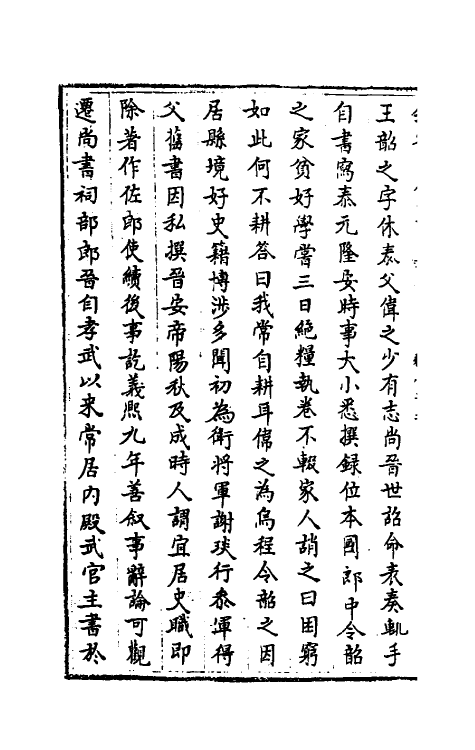 王韶之字休泰父偉之少有志尚晉世詔命表奏輒手
自書寫泰元隆安時事大小悉撰錄位本國郎中令韶
之家貧好學嘗三日絕糧執卷不輟家人誚之曰困窮
如此何不耕答曰我常自耕耳偉之為烏程令韶之因
居縣境好史籍博涉多聞初為衛將軍謝琰行參軍得
父舊書因私撰晉安帝陽秋及成時人謂宜居史職即
除著作佐郎使續後事訖義熙九年善敘事辭論可觀
遷尚書祠部郎晉自孝武以來常居內殿武官主書於